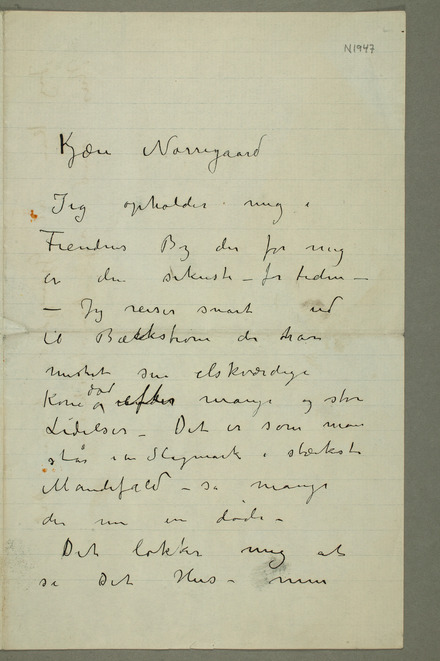 N1947
Kjære Nørregaard
Jeg opholder mig i
Fiendens By der for mig
er den sikreste – for tiden –
– Jeg reiser snart ud
til Bæckstrøm der har
mistet sin elskværdige
Kone død og efter mange og store
Lidelser – Det er som man
står i en Slagmark i stærkeste
Mandefald – så mange
der nu er døde –
Det lokker mig at
se Det Hus – min